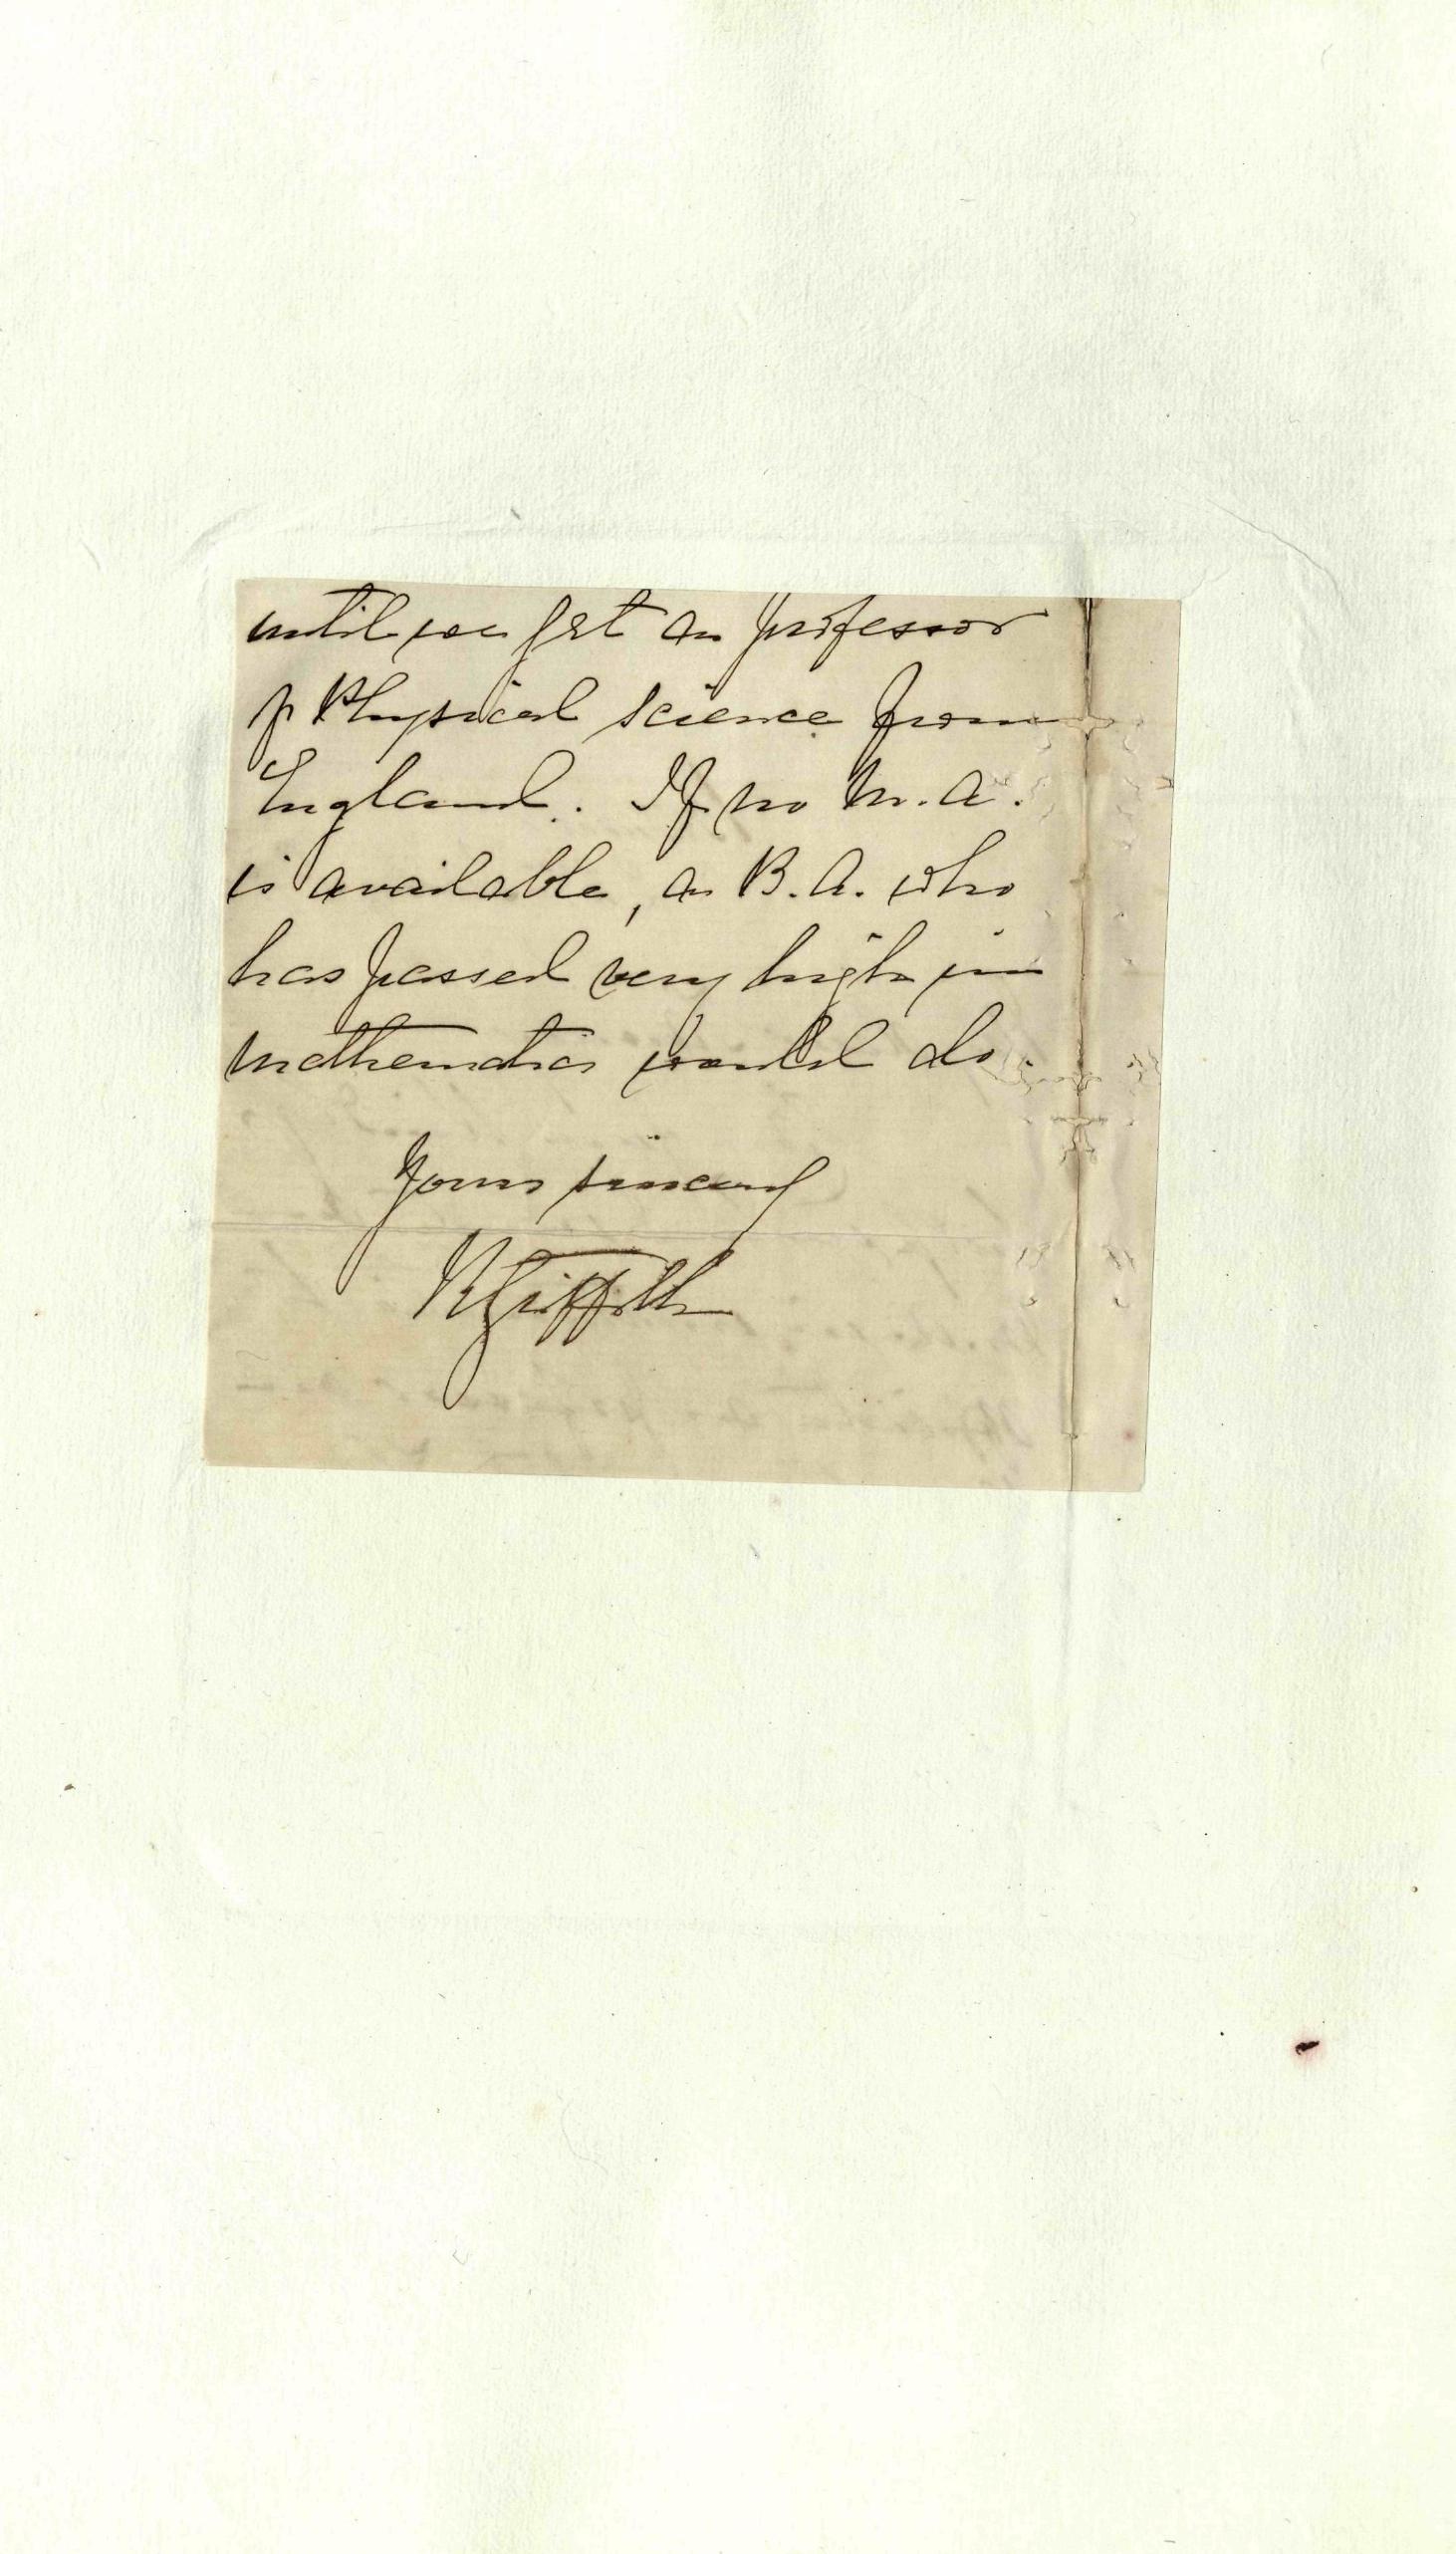 until we get a professor
of Physical science from
England. If no M.A.
is available, a B.A. who
has passed very high in
mathematics would do.
Yours sincerely
R Griffith